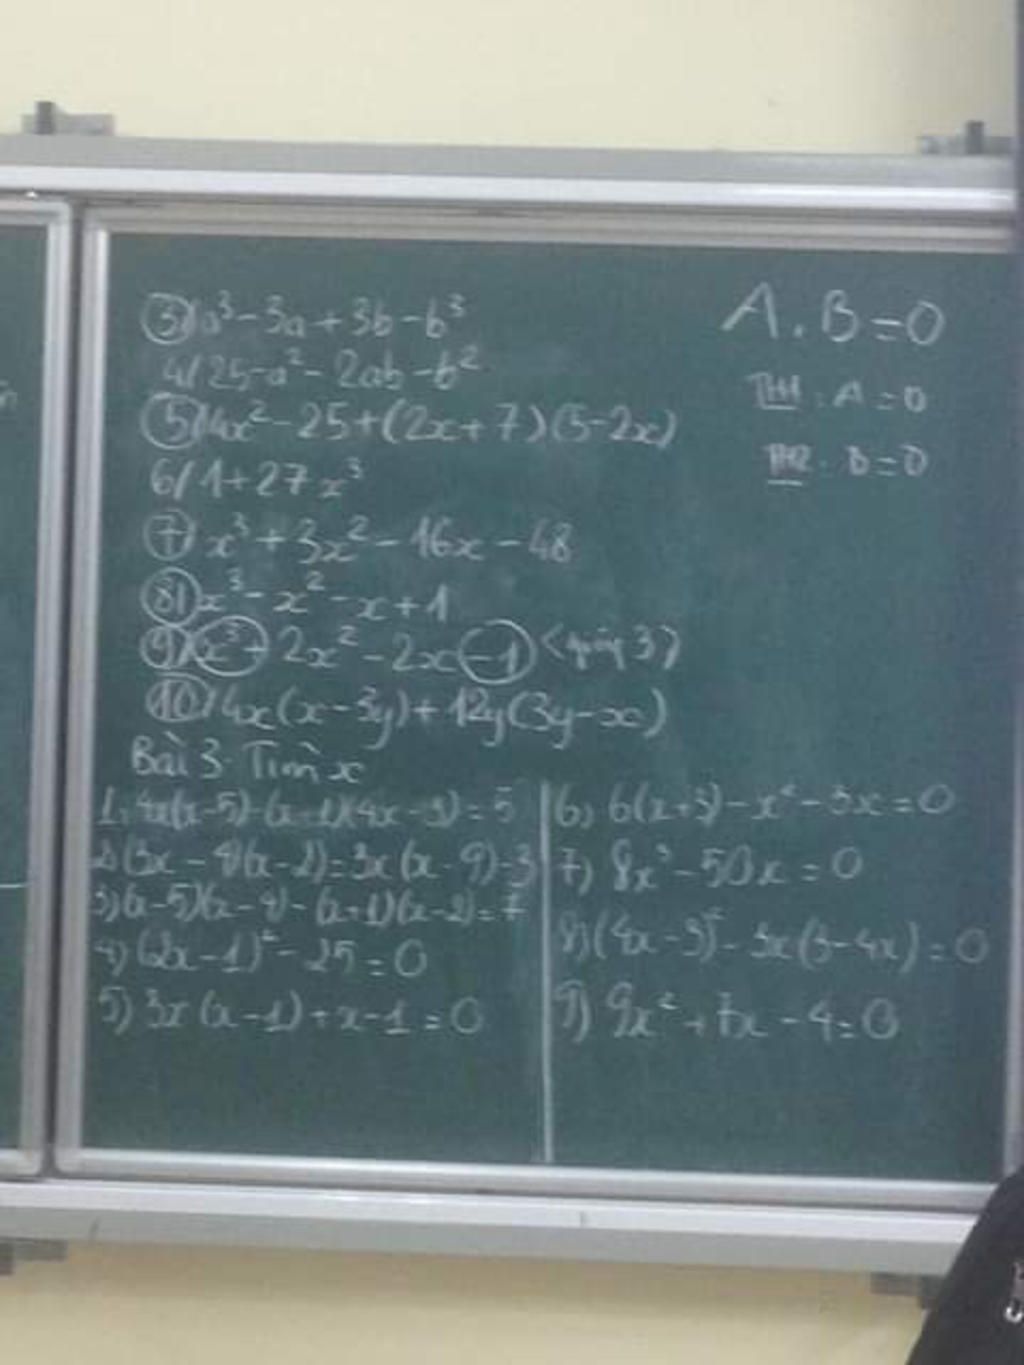 3) a³-3a+3b-b³
4/ 25-a²-2ab-b²
5/ 4x²-25+(2x+7)(5-2x)
6/ 1+27x³
7) x³+3x²-16x-48
8) x³-x²-x+1
9) x³+2x²-2x-1
10/ 4x(x-3y)+12y(3y-x)
A.B=0
TH1: A=0
TH2: B=0
Bài 3: Tìm x
1, 4x(x-5)-(x-1)(4x-3)=5
2) (3x-4)(x-2)=3x(x-9)-3
3) (x-5)(x-4)-(x+1)(x-2)=7
4) (2x-1)²-25=0
5) 3x(x-1)+x-1=0
6) 6(x+3)-x²-3x=0
7) 8x³-50x=0
8) (4x-3)²-3x(3-4x)=0
9) 9x²+7x-4=0